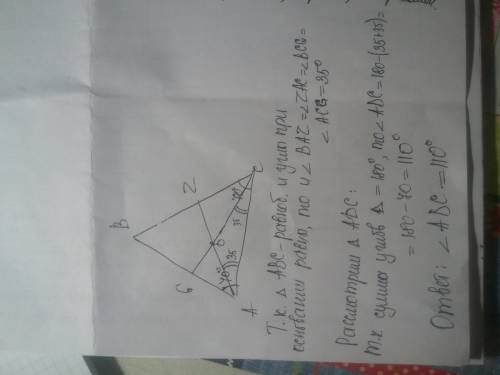 B
G
Z
O
C
A
70°
35
35
70°
Т.к. Δ ABC - равноб. и углы при
основании равно, то и ∠BAZ = ∠ZAC = ∠BCG =
∠ACG = 35°
Рассмотрим Δ ADC:
т.к сумма углов Δ = 180°, то ∠ADC = 180-(35+35)=
= 180 - 70 = 110°
Ответ: ∠ADC = 110°